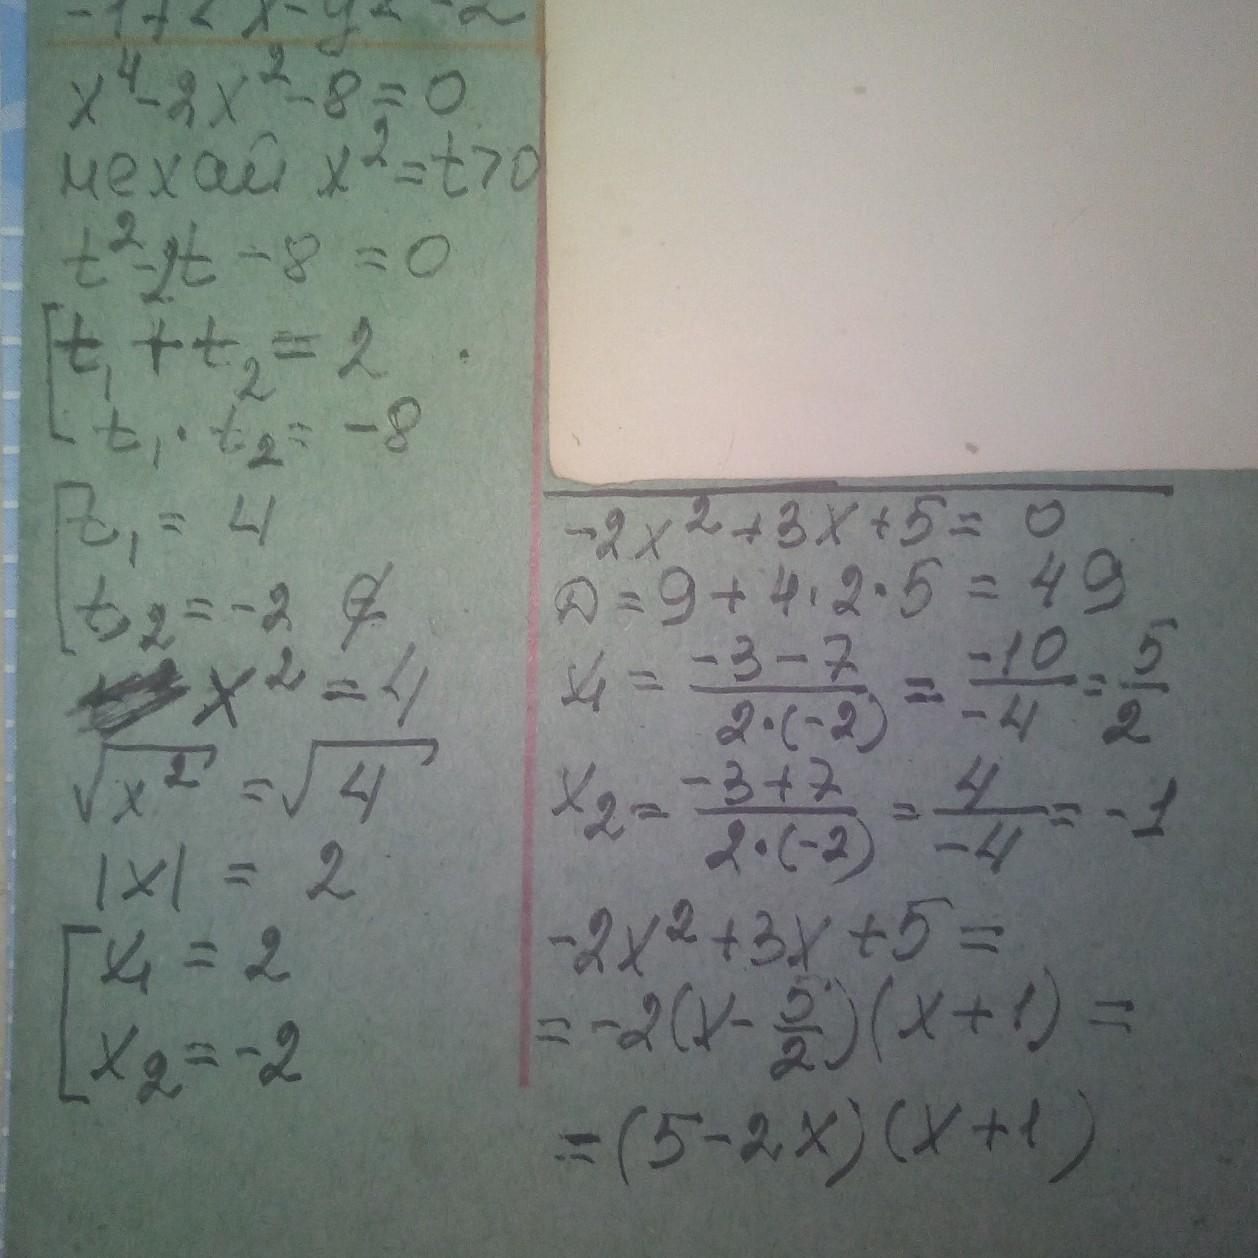 x⁴-2x²-8=0
нехай x²=t>0
t²-2t-8=0
t₁+t₂=2
t₁·t₂=-8
t₁=4
t₂=-2
x²=4
√x²=√4
|x|=2
x₁=2
x₂=-2
-2x²+3x+5=0
D=9+4·2·5=49
x₁=(-3-7)/(2·(-2))=-10/-4=5/2
x₂=(-3+7)/(2·(-2))=4/-4=-1
-2x²+3x+5=
=-2(x-5/2)(x+1)=
=(5-2x)(x+1)